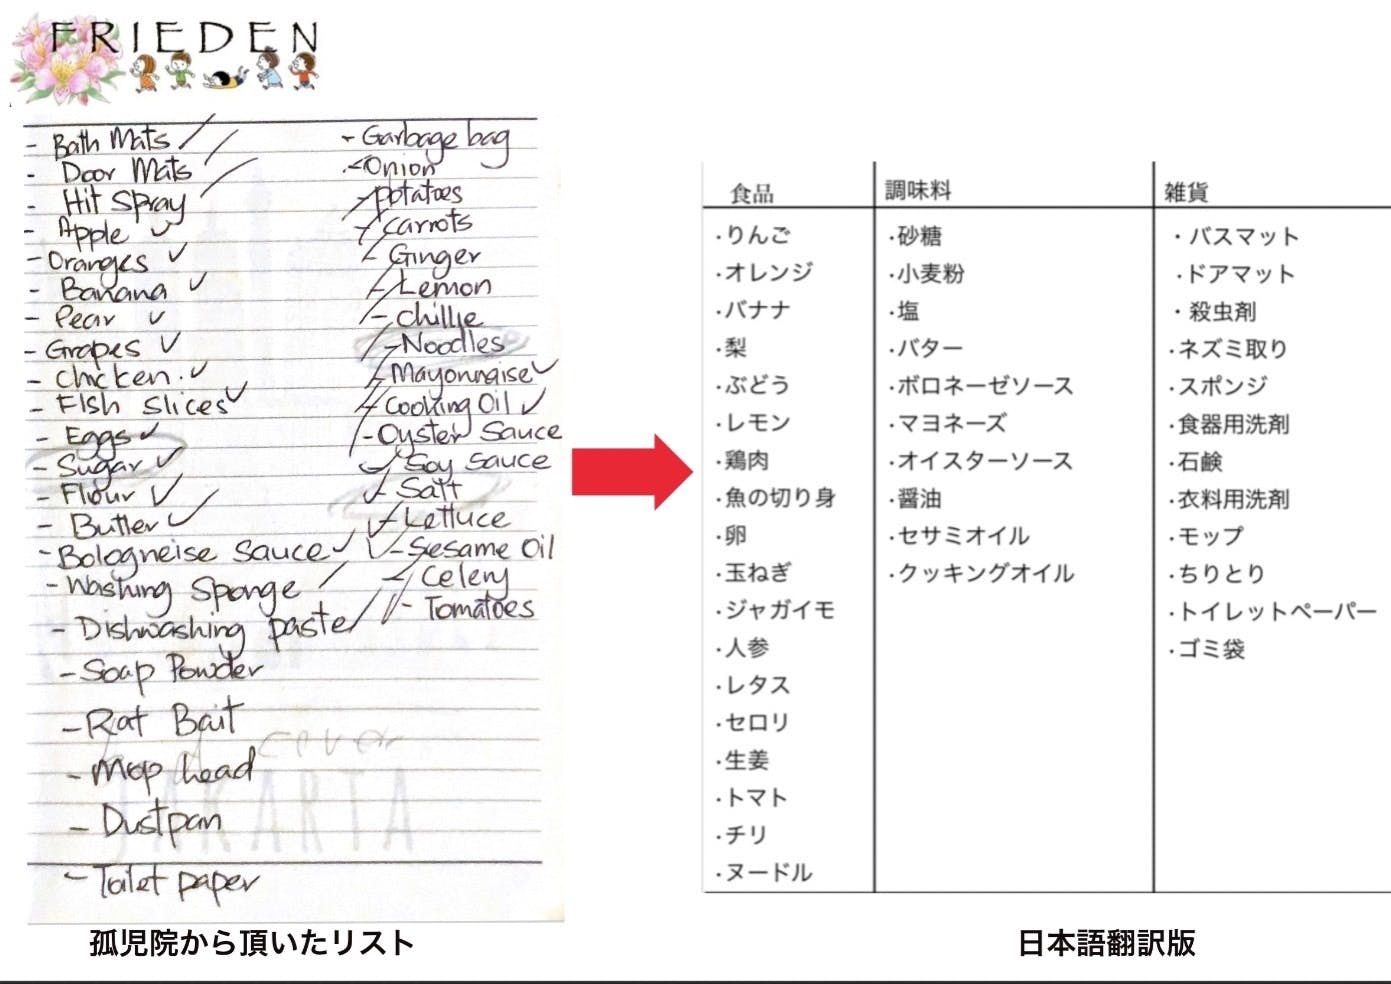 FRIEDEN
- Bath Mats
- Door Mats
- Hit Spray
- Apple
- Oranges
- Banana
- Pear
- Grapes
- Chicken.
- Fish Slices
- Eggs
- Sugar
- Flour
- Butter
- Bologneise Sauce
- Washing Sponge
- Dishwashing paste
- Soap Powder
- Rat Bait
- Mop head
- Dustpan
- Toilet paper
- Garbage bag
- Onion
- potatoes
- carrots
- Ginger
- Lemon
- chillie
- Noodles
- Mayonnaise
- Cooking Oil
- Oyster Sauce
- Soy Sauce
- Salt
- Lettuce
- Sesame Oil
- Celery
- Tomatoes
cover
JAKARTA
孤児院から頂いたリスト
食品
・りんご
・オレンジ
・バナナ
・梨
・ぶどう
・レモン
・鶏肉
・魚の切り身
・卵
・玉ねぎ
・ジャガイモ
・人参
・レタス
・セロリ
・生姜
・トマト
・チリ
・ヌードル
調味料
・砂糖
・小麦粉
・塩
・バター
・ボロネーゼソース
・マヨネーズ
・オイスターソース
・醤油
・セサミオイル
・クッキングオイル
雑貨
・バスマット
・ドアマット
・殺虫剤
・ネズミ取り
・スポンジ
・食器用洗剤
・石鹸
・衣料用洗剤
・モップ
・ちりとり
・トイレットペーパー
・ゴミ袋
日本語翻訳版